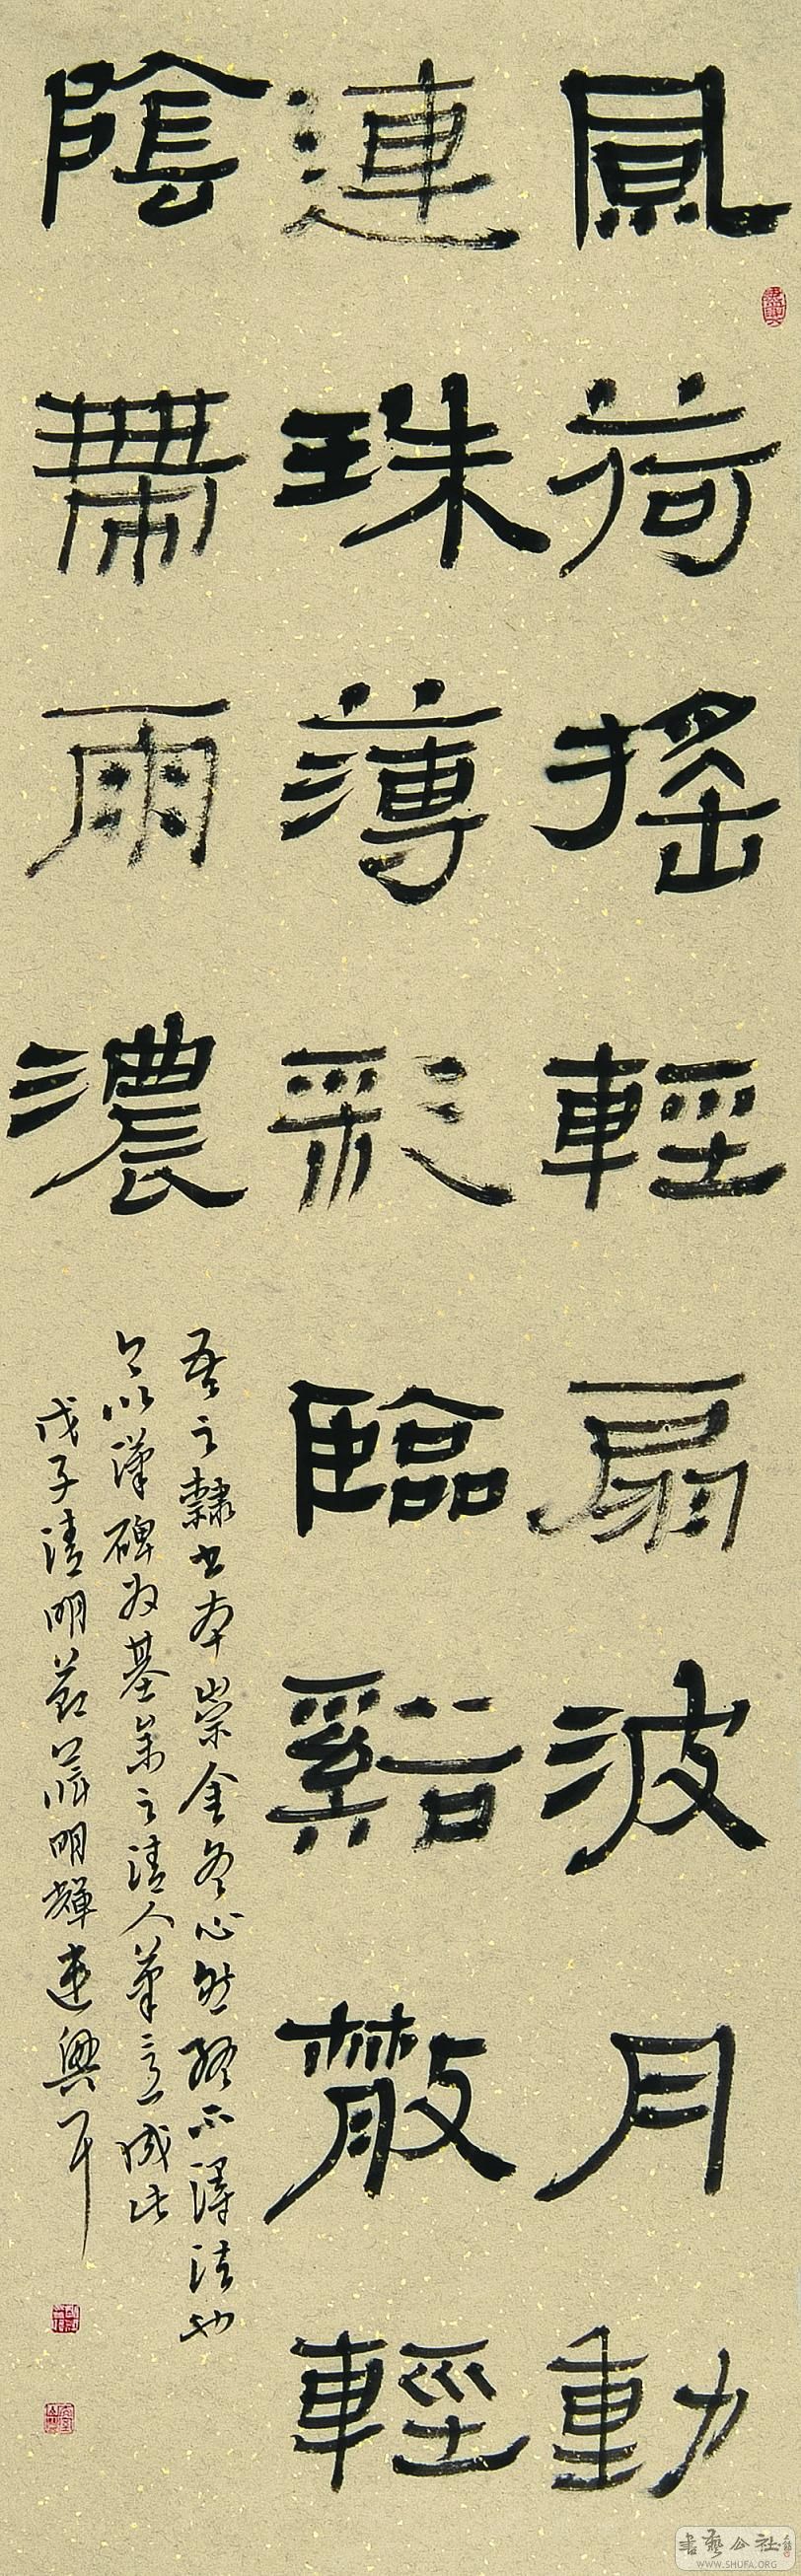 鳳荷搖輕扇波月動
連珠薄彩臨谿散輕
陰帶雨濃
吾之隸書本崇金冬心然終不得法也
今以漢碑為基兼之清人筆意成此
戊子清明節明輝遣興耳
書藝公社
WWW.SHUFA.ORG